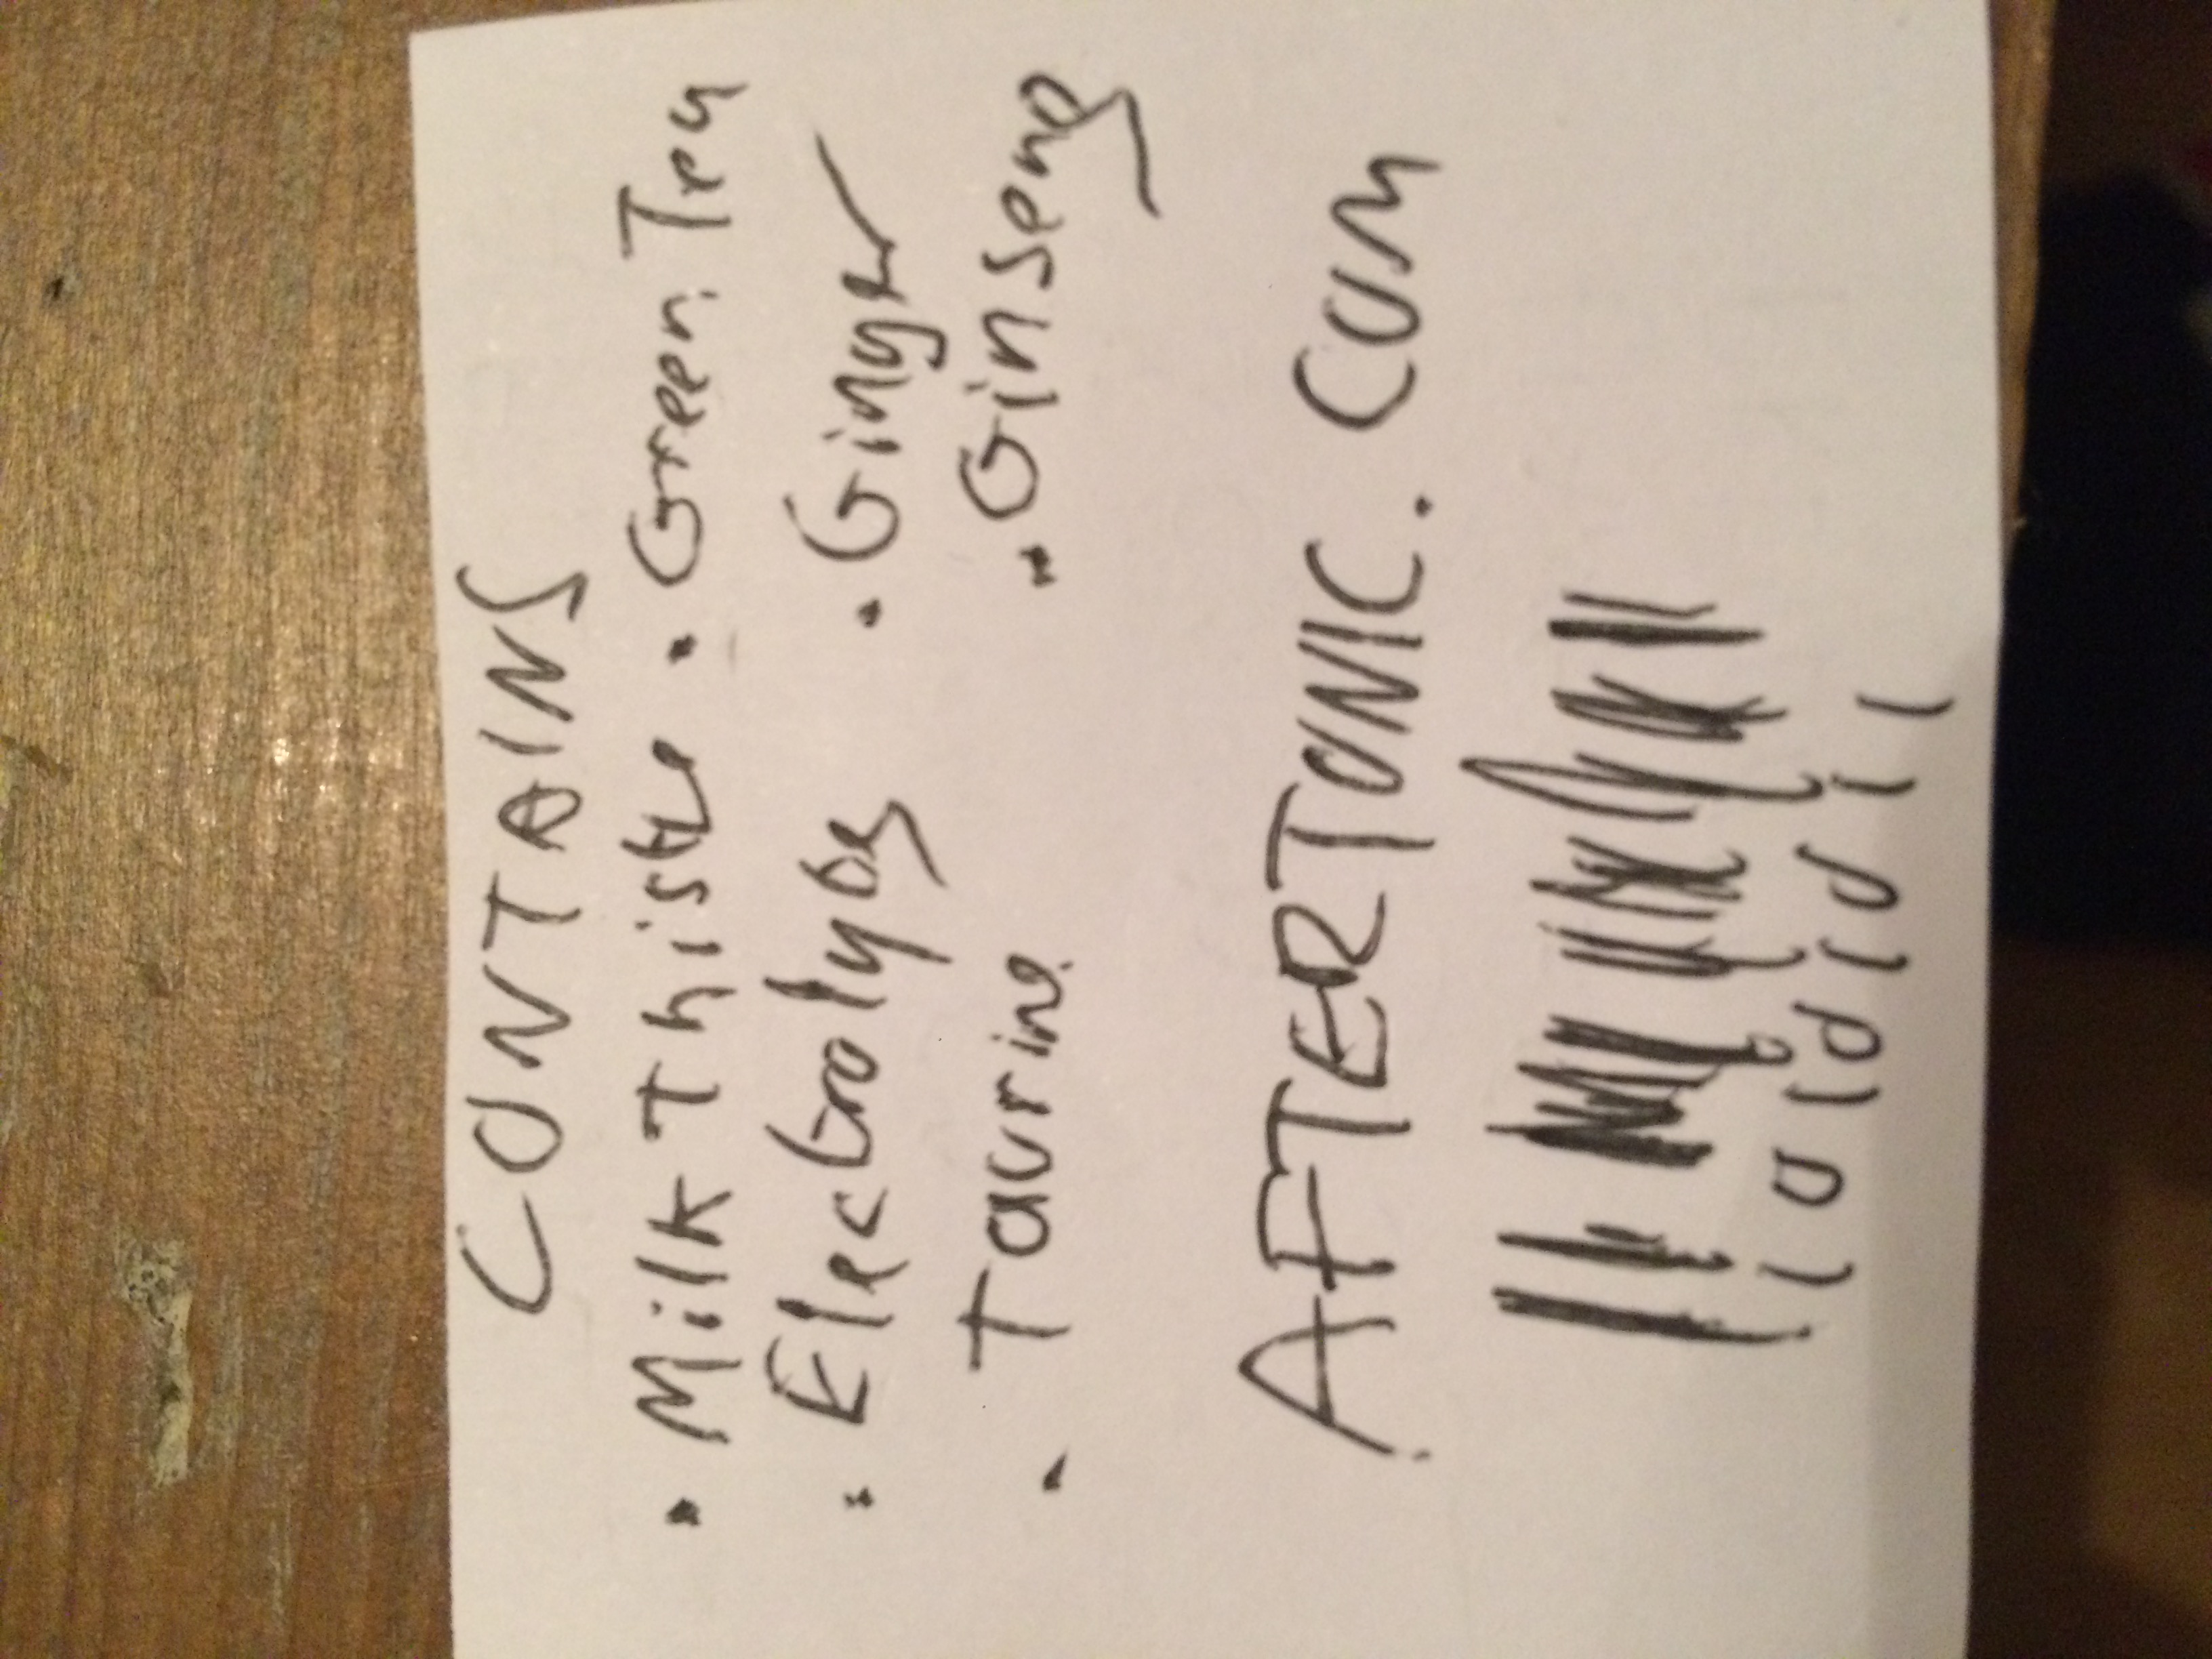 CONTAINS
• Milk Thistle • Green Tea
• Electrolytes • Ginger
• Taurine • Ginseng
AFTERTONIC. COM
1 0 1 0 1 0 1 1